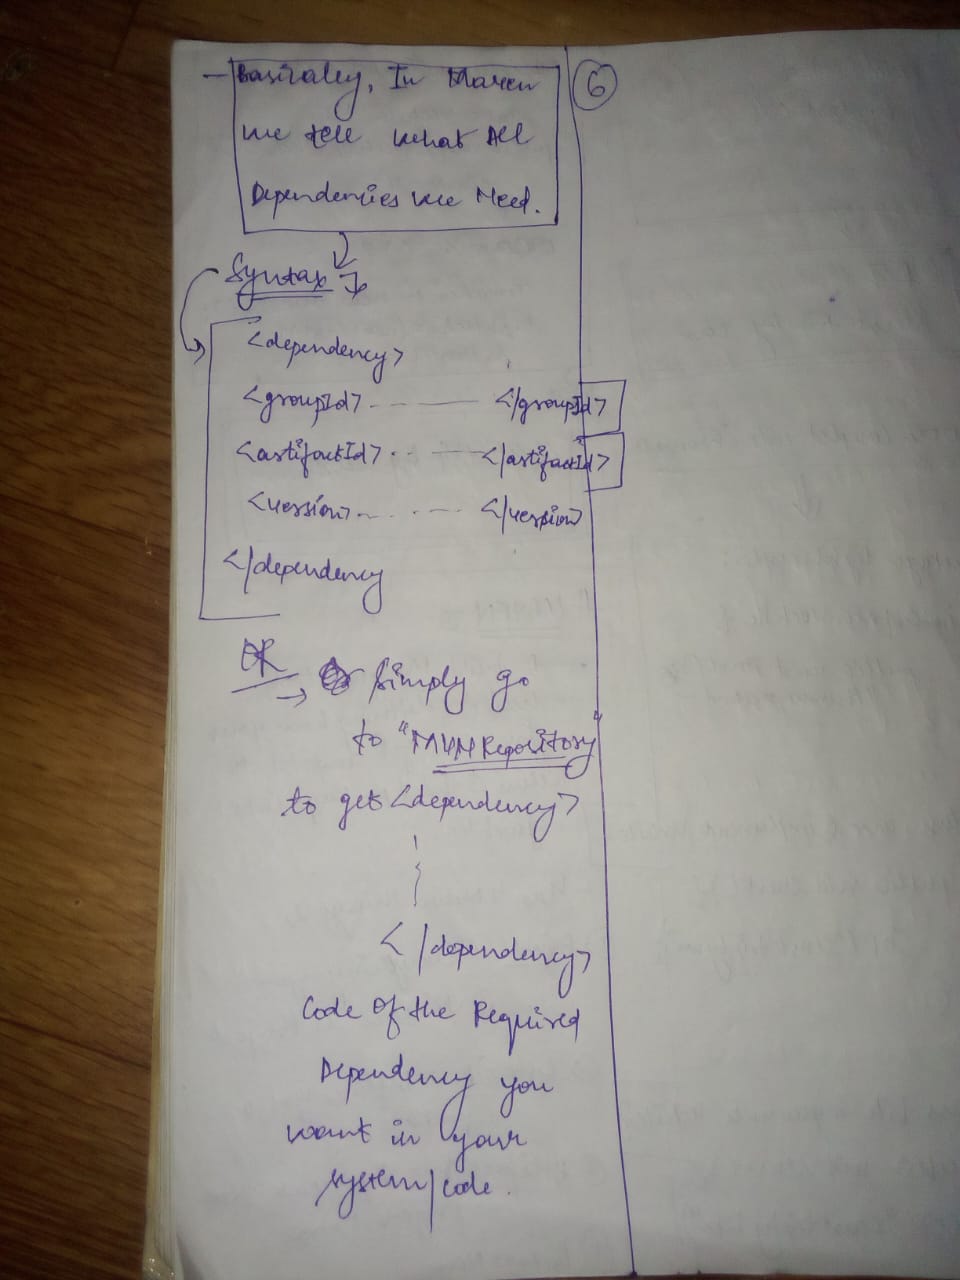 - Basically, In Maven
we tell what All
Dependencies we Need.
6
Syntax
<dependency>
<groupId> ... </groupId>
<artifactId> ... </artifactId>
<version> ... </version>
</dependency
OR
→ Simply go
to "MVN Repository"
to get <dependency>
</dependency>
Code Of the Required
Dependency you
want in your
system/code.